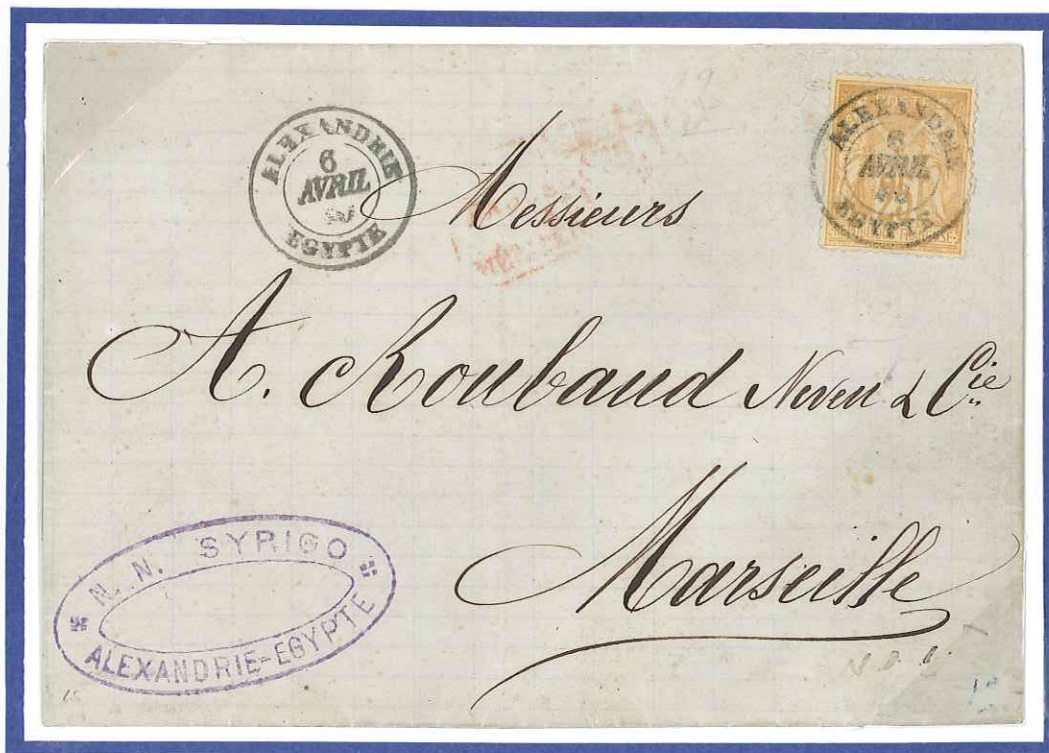 ALEXANDRIE
6
AVRIL
EGYPTE
ALEXANDRIE
6
AVRIL
EGYPTE
25
Messieurs
A. Roubaud Neveu & Cie
Marseille
N. N. SYRIGO
ALEXANDRIE-EGYPTE